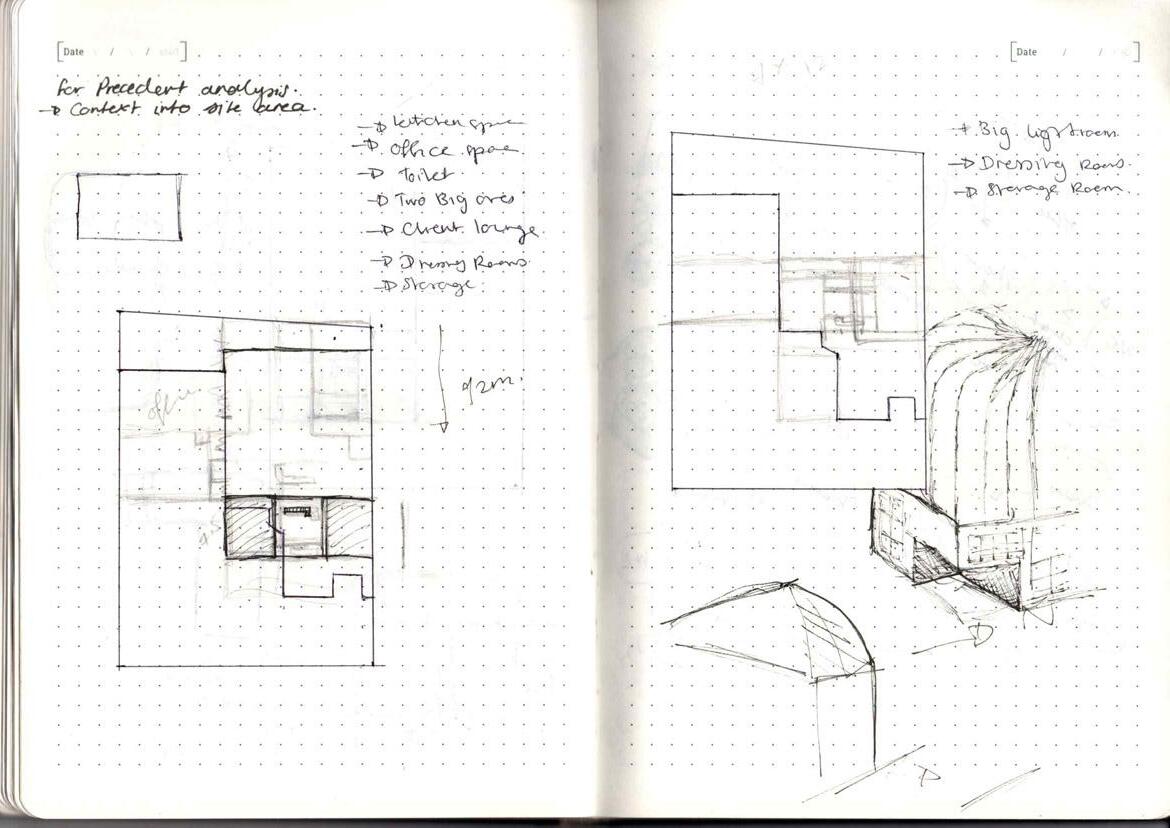 [Date / / ]
for Precedent analysis.
→ Context into site area.
→ kitchen space
→ Office space
→ Toilet
→ Two Big ones
→ Client lounge
→ Dressing Rooms
→ Storage
office
92m.
[Date / / ]
→ Big lightroom
→ Dressing Room.
→ Storage Room.